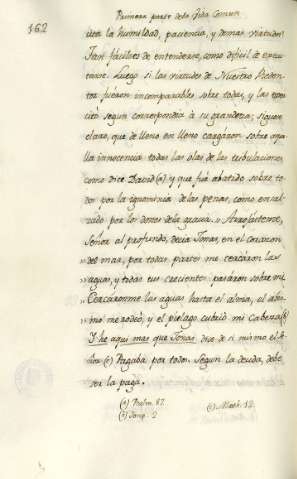 162
Primera parte de la Vida Comun
cita la humildad, paciencia, y demas virtudes
Tan fáciles de entenderse, como dificil de execu
tarse. Luego si las virtudes de Nuestro Reden
tor fueron incomparables sobre todas, y las exer
citó segun correspondia à su grandeza; siguese
claro, que de lleno en lleno cargáron sobre aque
lla innocencia todas las olas de las tribulaciones,
como dice David (a) y que fué abatido sobre to
dos por la ignominia de las penas, como ensal
zado por los dones de la gracia. "Arrojasteme,
Señor al profundo, decia Jonas, en el corazon
"del mar, por todas partes me cercáron las
"aguas, y todas sus crecientes pasáron sobre mi.
"Cercáronme las aguas hasta el alma, el abis
"mo me rodeó, y el pielago cubrió mi cabeza (b)
Y he aqui mas que Jonas, dice de si mismo el
(c) Pagaba por todos. Segun la deuda, debe
ser la paga.
(a) Psalm. 87.
(b) Jonæ. 2
(c) Math. 12.